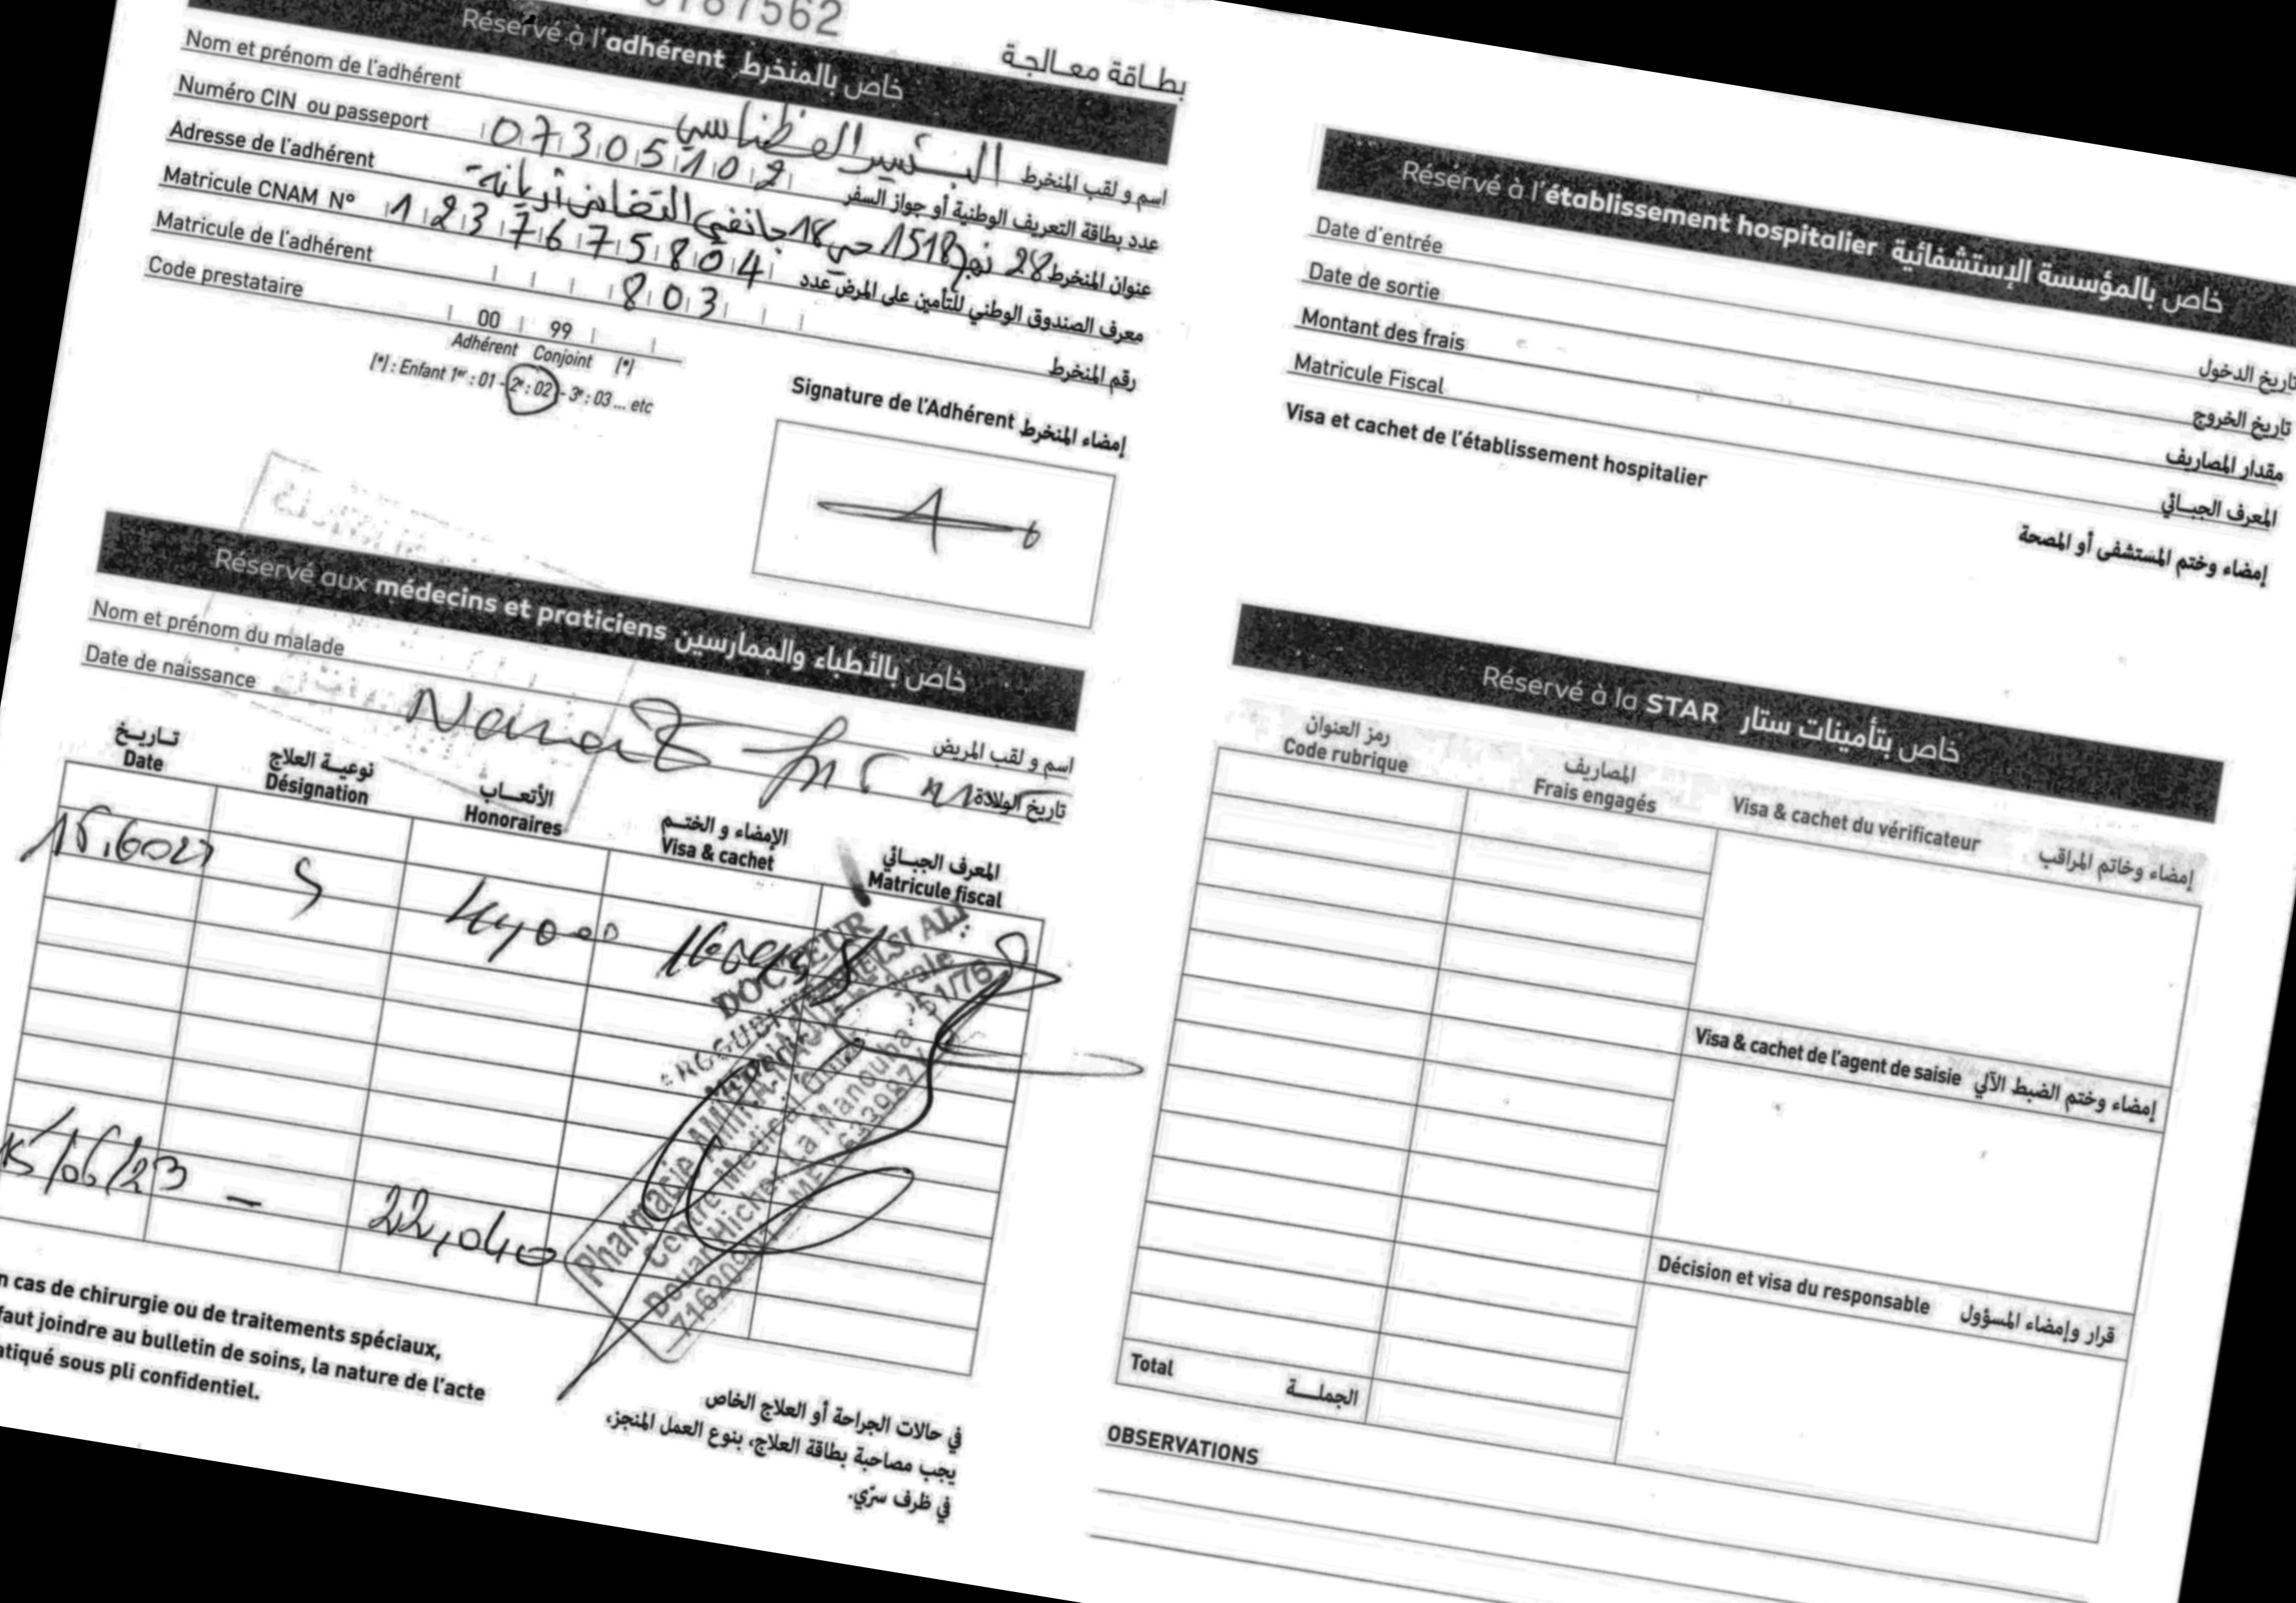 بطـاقة معـالجـة
Réservé à l'adhérent خاص بالمنخرط
Nom et prénom de l'adhérent اسم و لقب المنخرط
Numéro CIN ou passeport 07305102 عدد بطاقة التعريف الوطنية أو جواز السفر
Adresse de l'adhérent 28 نهج 1518 حي 18 جانفي التضامن أريانة عنوان المنخرط
Matricule CNAM N° 1237675804 معرف الصندوق الوطني للتأمين على المرض عدد
Matricule de l'adhérent 803 رقم المنخرط
Code prestataire 00 99
Adhérent Conjoint (*)
(*) : Enfant 1er : 01 - 2e : 02 - 3e : 03 ... etc
Signature de l'Adhérent إمضاء المنخرط
Réservé aux médecins et praticiens خاص بالأطباء والممارسين
Nom et prénom du malade اسم و لقب المريض
Date de naissance تاريخ الولادة
تـاريـخ نوعيـة العلاج الأتعـاب الإمضاء و الختـم المعرف الجبـائي
Date Désignation Honoraires Visa & cachet Matricule fiscal
DOCTEUR
15/06/23 - 22,040
Pharmacie
Centre Médical
Douar Hicher La Manouba
En cas de chirurgie ou de traitements spéciaux,
faut joindre au bulletin de soins, la nature de l'acte
pratiqué sous pli confidentiel.
في حالات الجراحة أو العلاج الخاص
يجب مصاحبة بطاقة العلاج، بنوع العمل المنجز،
في ظرف سرّي.
Réservé à l'établissement hospitalier خاص بالمؤسسة الإستشفائية
Date d'entrée تاريخ الدخول
Date de sortie تاريخ الخروج
Montant des frais مقدار المصاريف
Matricule Fiscal المعرف الجبـائي
Visa et cachet de l'établissement hospitalier إمضاء وختم المستشفى أو المصحة
Réservé à la STAR خاص بتأمينات ستار
رمز العنوان المصاريف
Code rubrique Frais engagés Visa & cachet du vérificateur إمضاء وخاتم المراقب
Visa & cachet de l'agent de saisie إمضاء وختم الضبط الآلي
Décision et visa du responsable قرار وإمضاء المسؤول
Total الجملـــة
OBSERVATIONS